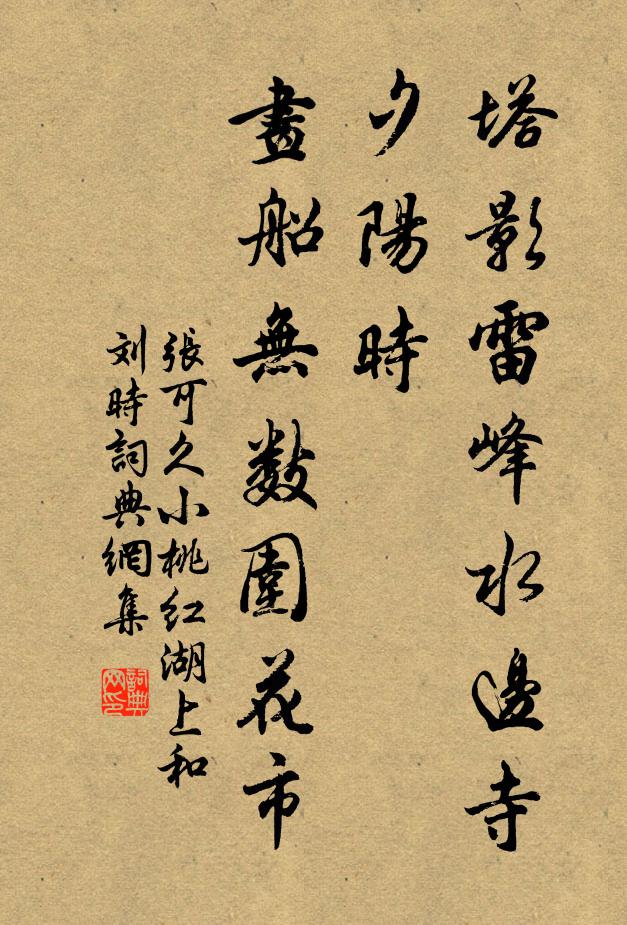 塔影雷峰水邊寺
夕陽時
畫船無數圍花市
張可久小桃紅湖上和
刘時詞典網集
詞典网印